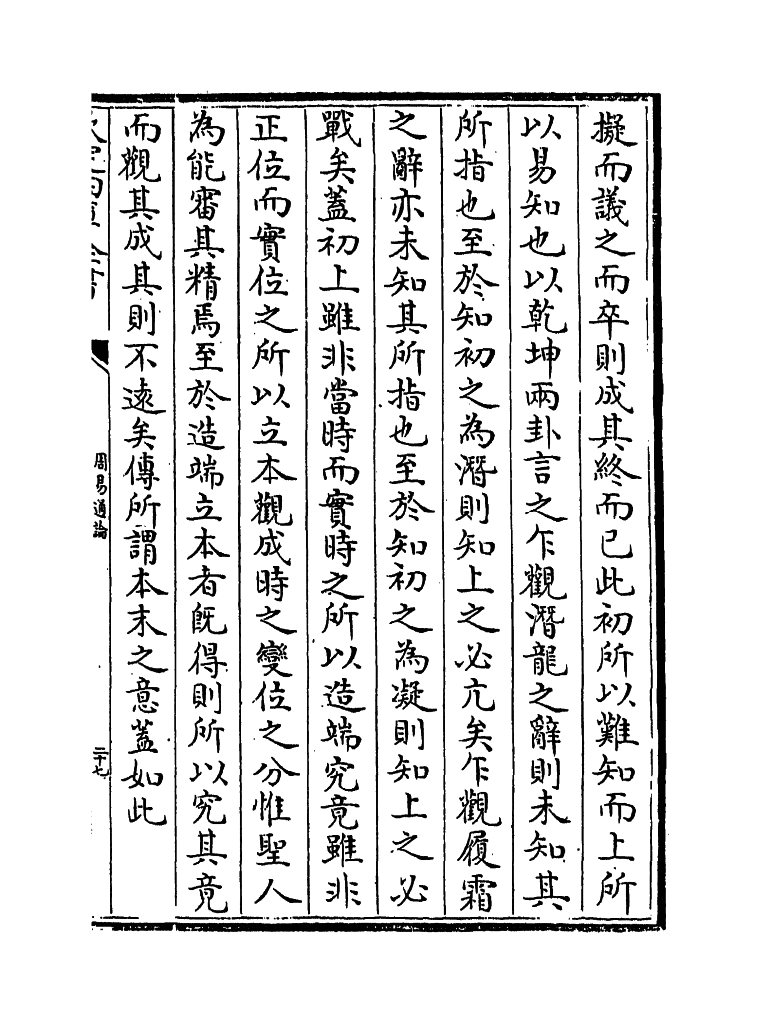 擬而議之而卒則成其終而已此初所以難知而上所
以易知也以乾坤兩卦言之乍觀潛龍之辭則未知其
所指也至於知初之為潛則知上之必亢矣乍觀履霜
之辭亦未知其所指也至於知初之為凝則知上之必
戰矣蓋初上雖非當時而實時之所以造端究竟雖非
正位而實位之所以立本觀成時之變位之分惟聖人
為能審其精焉至於造端立本者既得則所以究其竟
而觀其成其則不遠矣傳所謂本末之意蓋如此
周易通論
二十七